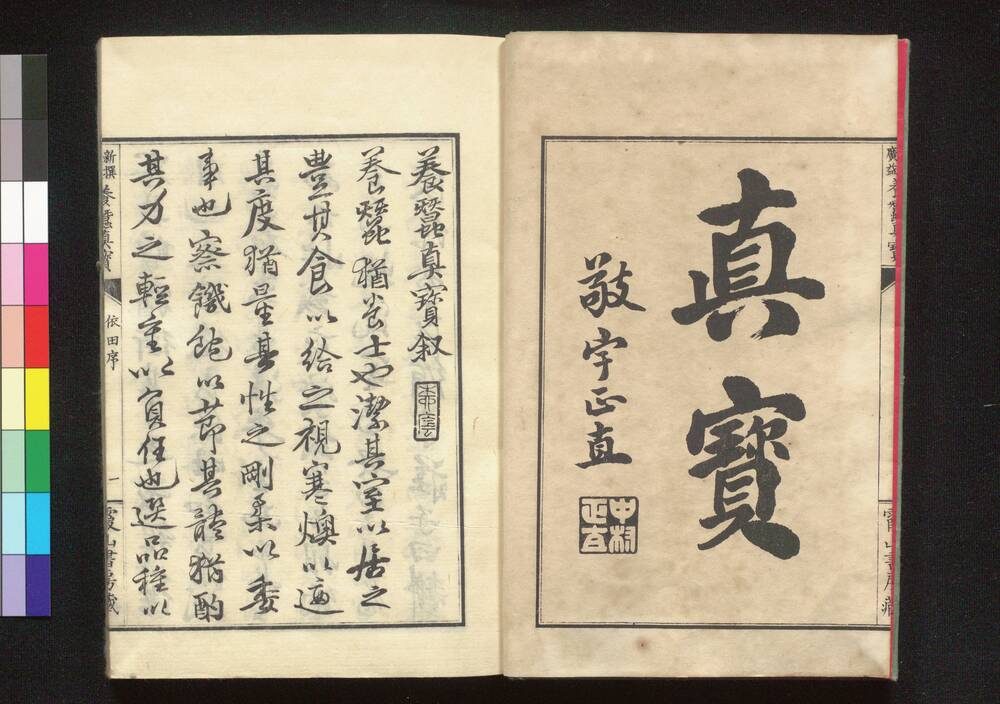 真寳
敬宇正直
中村
正直
養蠶真寳叙
養蠶猶養士也潔其室以居之
豊其食以給之視寒燠以適
其度猶量其性之剛柔以委
事也察饑飽以節其體猶酌
其力之輕重以負任也選品種以
新撰養蠶真寳
依田序
一
霞山書房藏